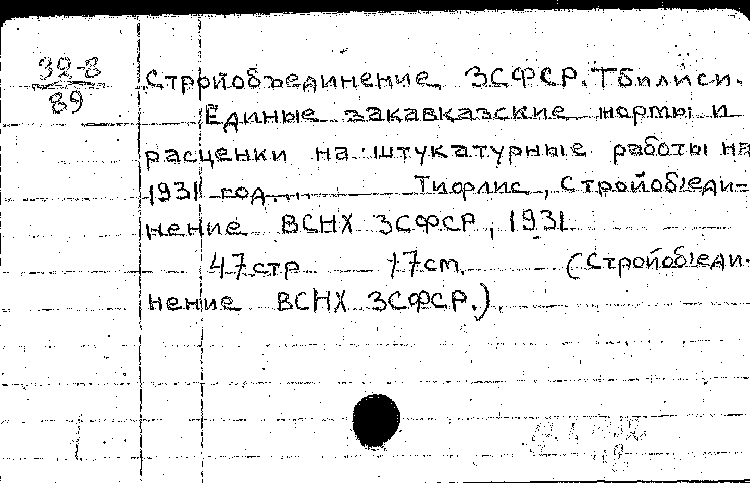 32-8
89
Стройобъединение ЗСФСР. Тбилиси.
Единые закавказские нормы и
расценки на штукатурные работы на
1931 год.... Тифлис, Стройоб'еди-
нение ВСНХ ЗСФСР, 1931
47стр 17см. (Стройоб'еди-
нение ВСНХ ЗСФСР.).